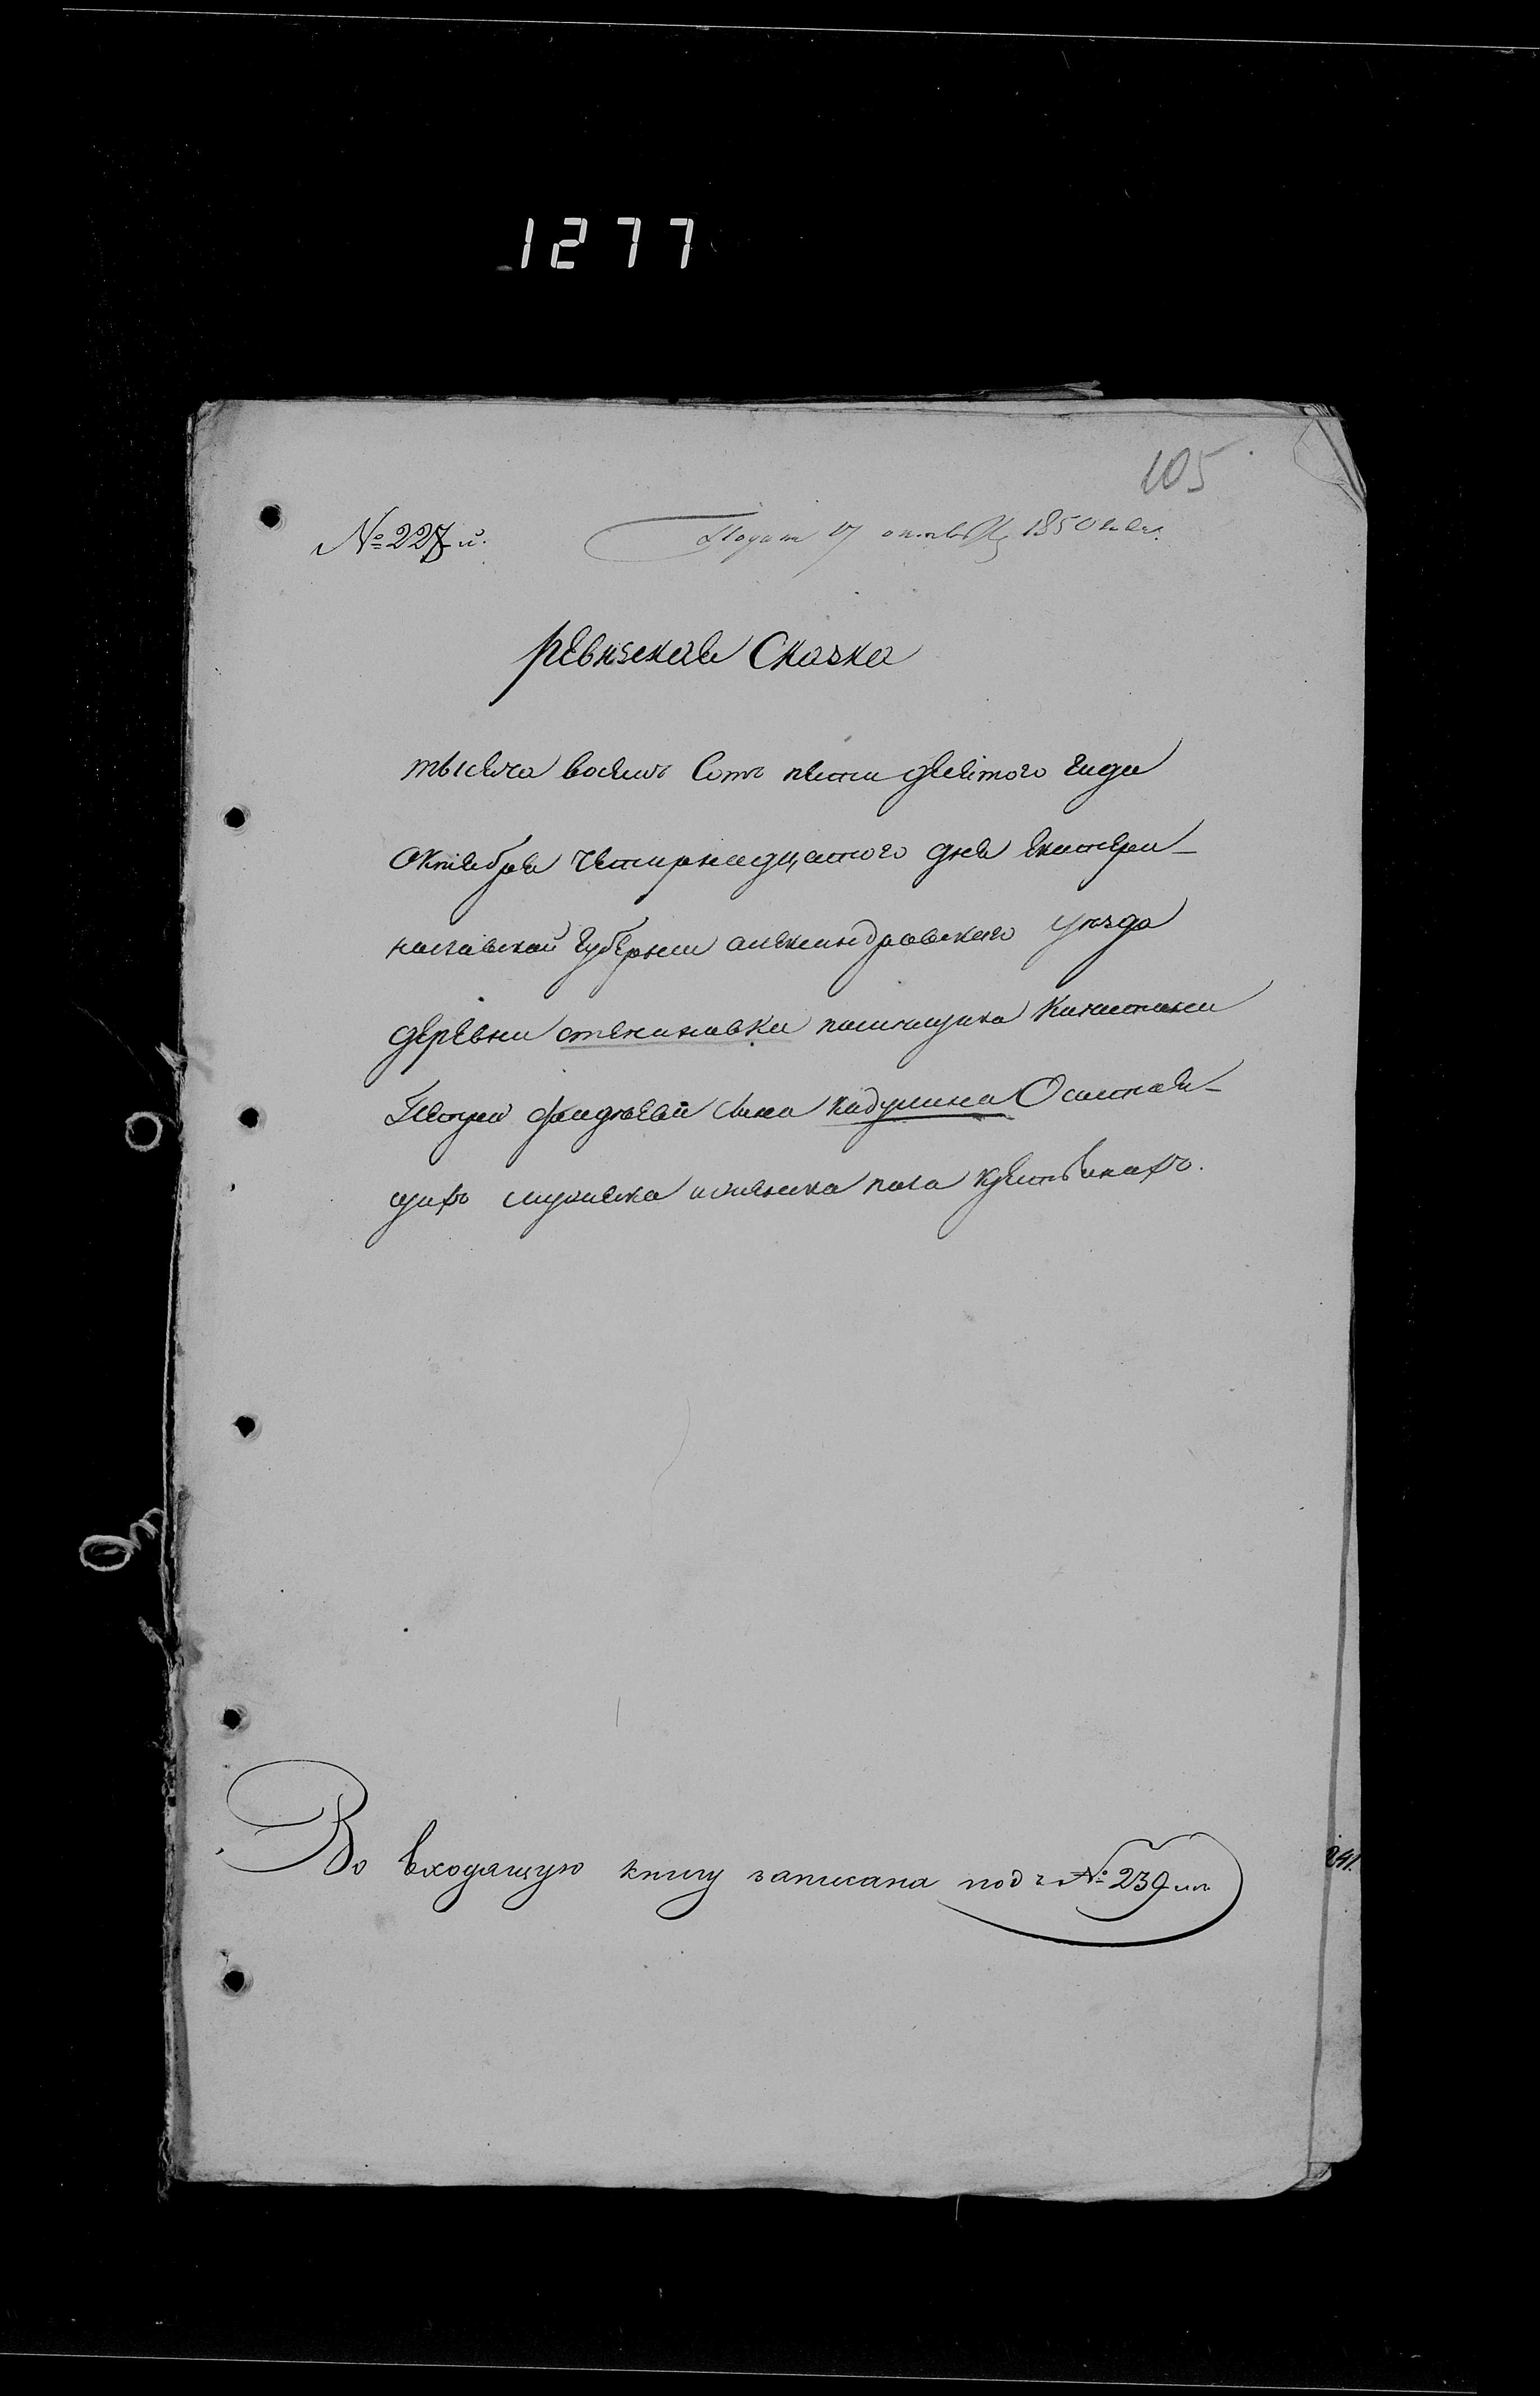 1277
105
№ 227й. Подана 17 октября 1850 года.
ревизская Сказка
тысяча восемь Сотъ пети десятого года
Октября четирнадцатого дня екатери-
наславской губернии александровского уезда
деревни степановки помещика капитана
Петра фадеева сина кадушина О состоя-
щихъ мужеска и женска пола крестьянахъ.
Во входящую книгу записана подъ № 239мъ
241.